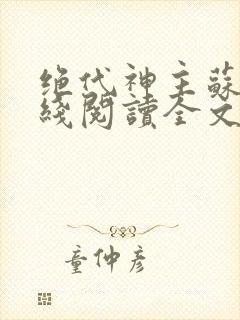 绝代神主蘇
綫閱讀全文
童仲彦